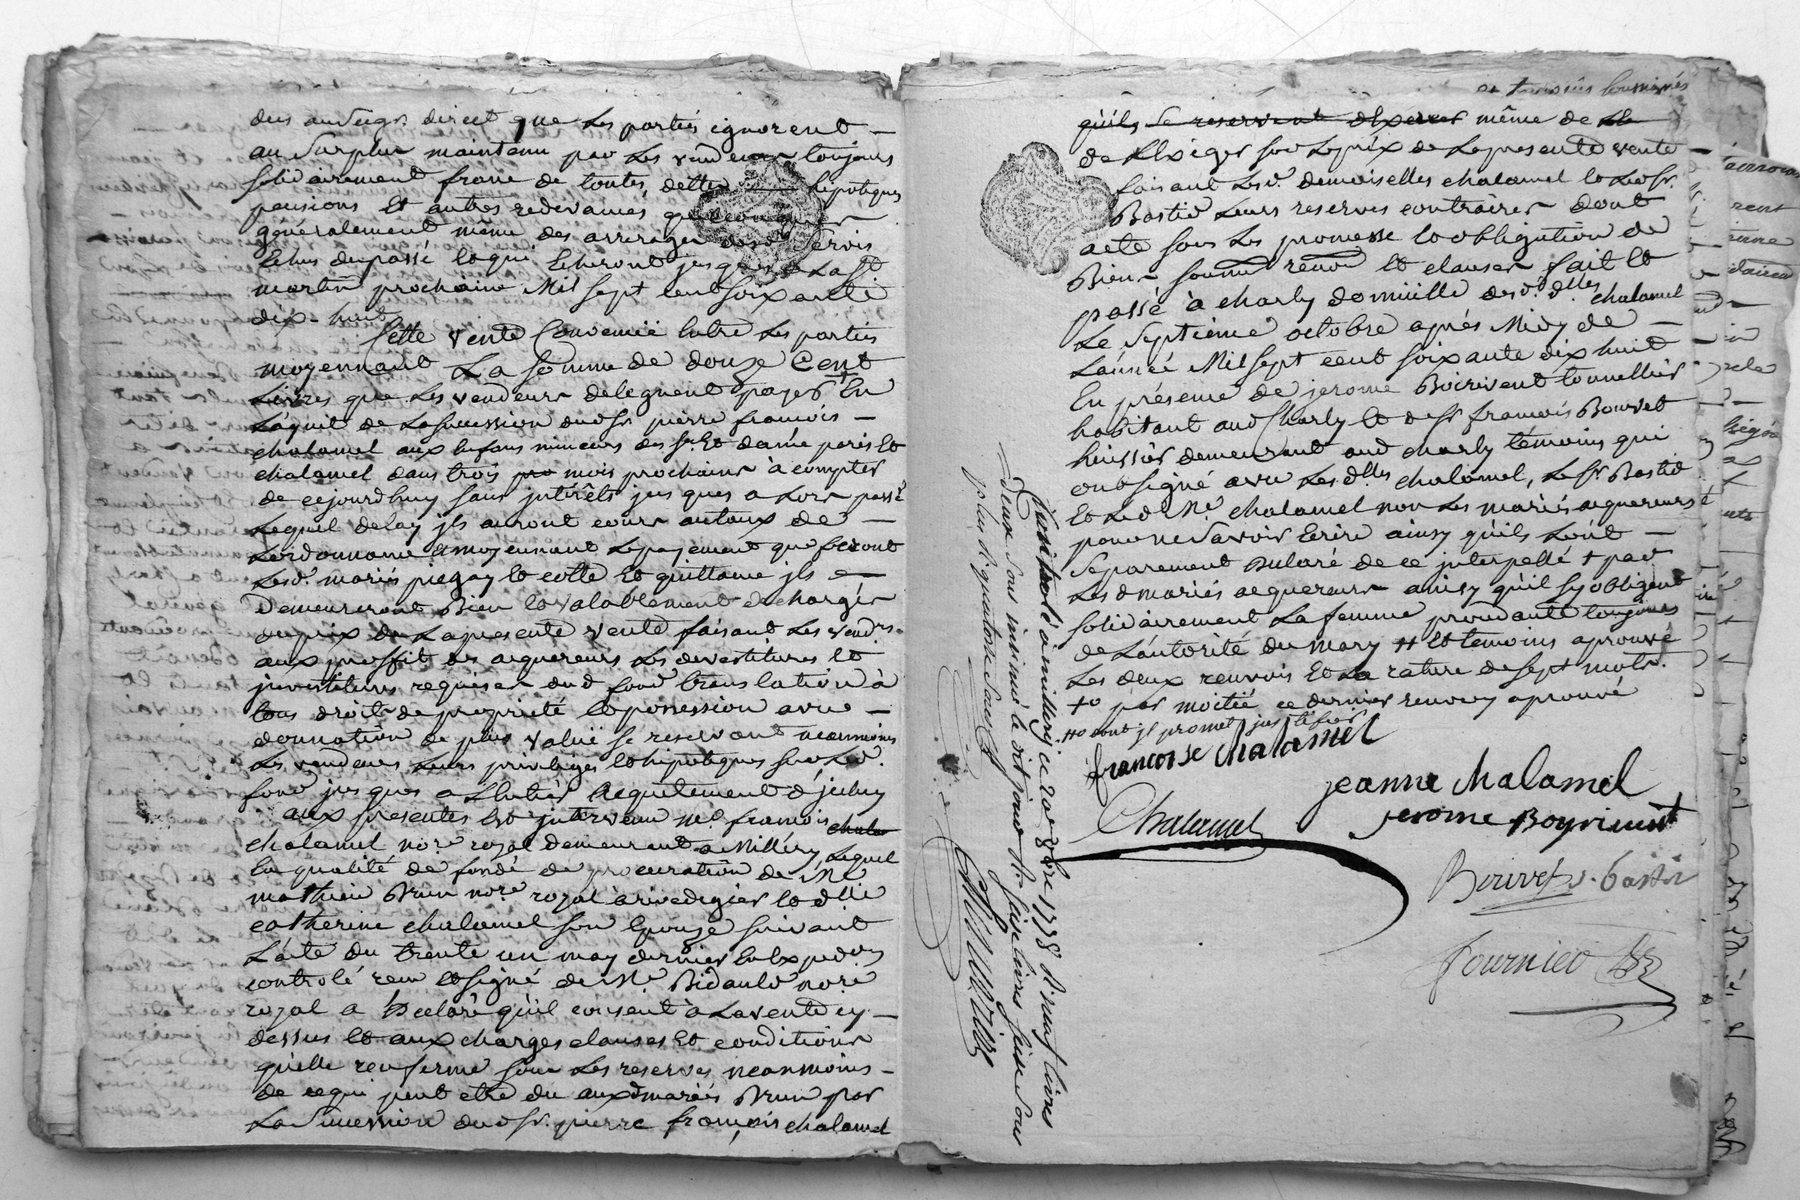 deus au Seigr. direct que Les parties ignorent —
au Surplus maintenu par Les vendeurs toujours
solidairement franc de toutes dettes hipoteques
pensions Et autres redevances quelconques
généralement même des arrerages desd. Servis
Echus du passé Et qui Echeront jusques a La St
martin prochaine Mil sept Cent soixante
dix-huit
Cette vente Convenüe Entre Les parties
moyennant La somme de douze Cent
Livres que Les vendeurs deleguent payer En
L'aquit de La succession dud sr. pierre françois —
chalamel aux Enfans mineurs des Sr. Et dame paris Et
chalamel dans trois mois prochains à compter
de cejourd'huy sans jntérêts jusques a Lors passé
Lequel delay jls auront cours au taux de —
L'ordonnance Et moyennant Le payement que feront
Lesd. mariés piegay Et cotte Et quittance jls —
Demeureront Bien Et valablement dechargés
du prix de La presente vente faisant Les vendrs.
aux proffit des aquereurs Les devestitures Et
jnvestitures requises dud fond translation à
tous droits de proprieté Et possession avec —
donnation de plus valüe se reservant neanmoins
Les vendeurs Leurs privileges Et hipoteques sur Led.
fond jusques a L'Entier aquitement d'jceluy
aux presentes Est jntervenu Me. françois chala
chalamel nore. royal demeurant a Millery Lequel
En qualité de fondé de procuration de Me
mathieu Brun nore. royal a rivedegier Et dlle
catherine chalamel son Epouse suivant
L'acte du trente un may dernier En Expedon
controlé reçu Et signé de Me. Bidauld nore
royal a Declaré qu'jl consent à La vente cy —
dessus Et aux charges clauses Et conditions
qu'elle renferme sous Les reserves neanmoins —
de ce qui peut etre du auxd mariés Brun par
La Succession dud sr. pierre françois chalamel
qu'ils se reservent d'Exercer même de Le
de L'Exiger sur Le prix de La presente vente —
faisant Lesd. demoiselles chalamel Et Led Sr.
Bastid Leurs reserves contraires dont
acte sous Les promesse Et obligation de
Biens soumission renon Et clauses fait Et
passé à charly domicille desd. dlles chalamel
Le Septième octobre après Midy de —
L'année Mil sept cent soixante dix huit
En présence de jerome Boirivent tonnellier
habitant aud Charly Et de Sr françois Bouvet
huissier demeurant aud charly témoins qui
ont signé avec Les dlles chalamel, Le Sr Bastid
Et Led Me. chalamel non Les mariés aquereurs
pour ne Savoir Ecrire ainsy qu'ils L'ont —
Separement Declaré de ce jnterpellé + par
Les d mariés aquereurs ainsy qu'il sy obligent
solidairement La femme procedante toujours
de L'autorité du mary # Et temoins aprouvé
Les deux renvois Et La rature de sept mots.
+o par moitié ce dernier renvoy aprouvé
++o dont jl promet justifier
francoise chalamel
jeanne chalamel
Chalamel
jerome Boyrivent
Bouvet
Bastid
Fournier
Controlé a millery ce 20e 8bre 1778 Rx neuf livres
deux sous jnsinué le dit jour Rx seize livres seize sous
plus signature sauf